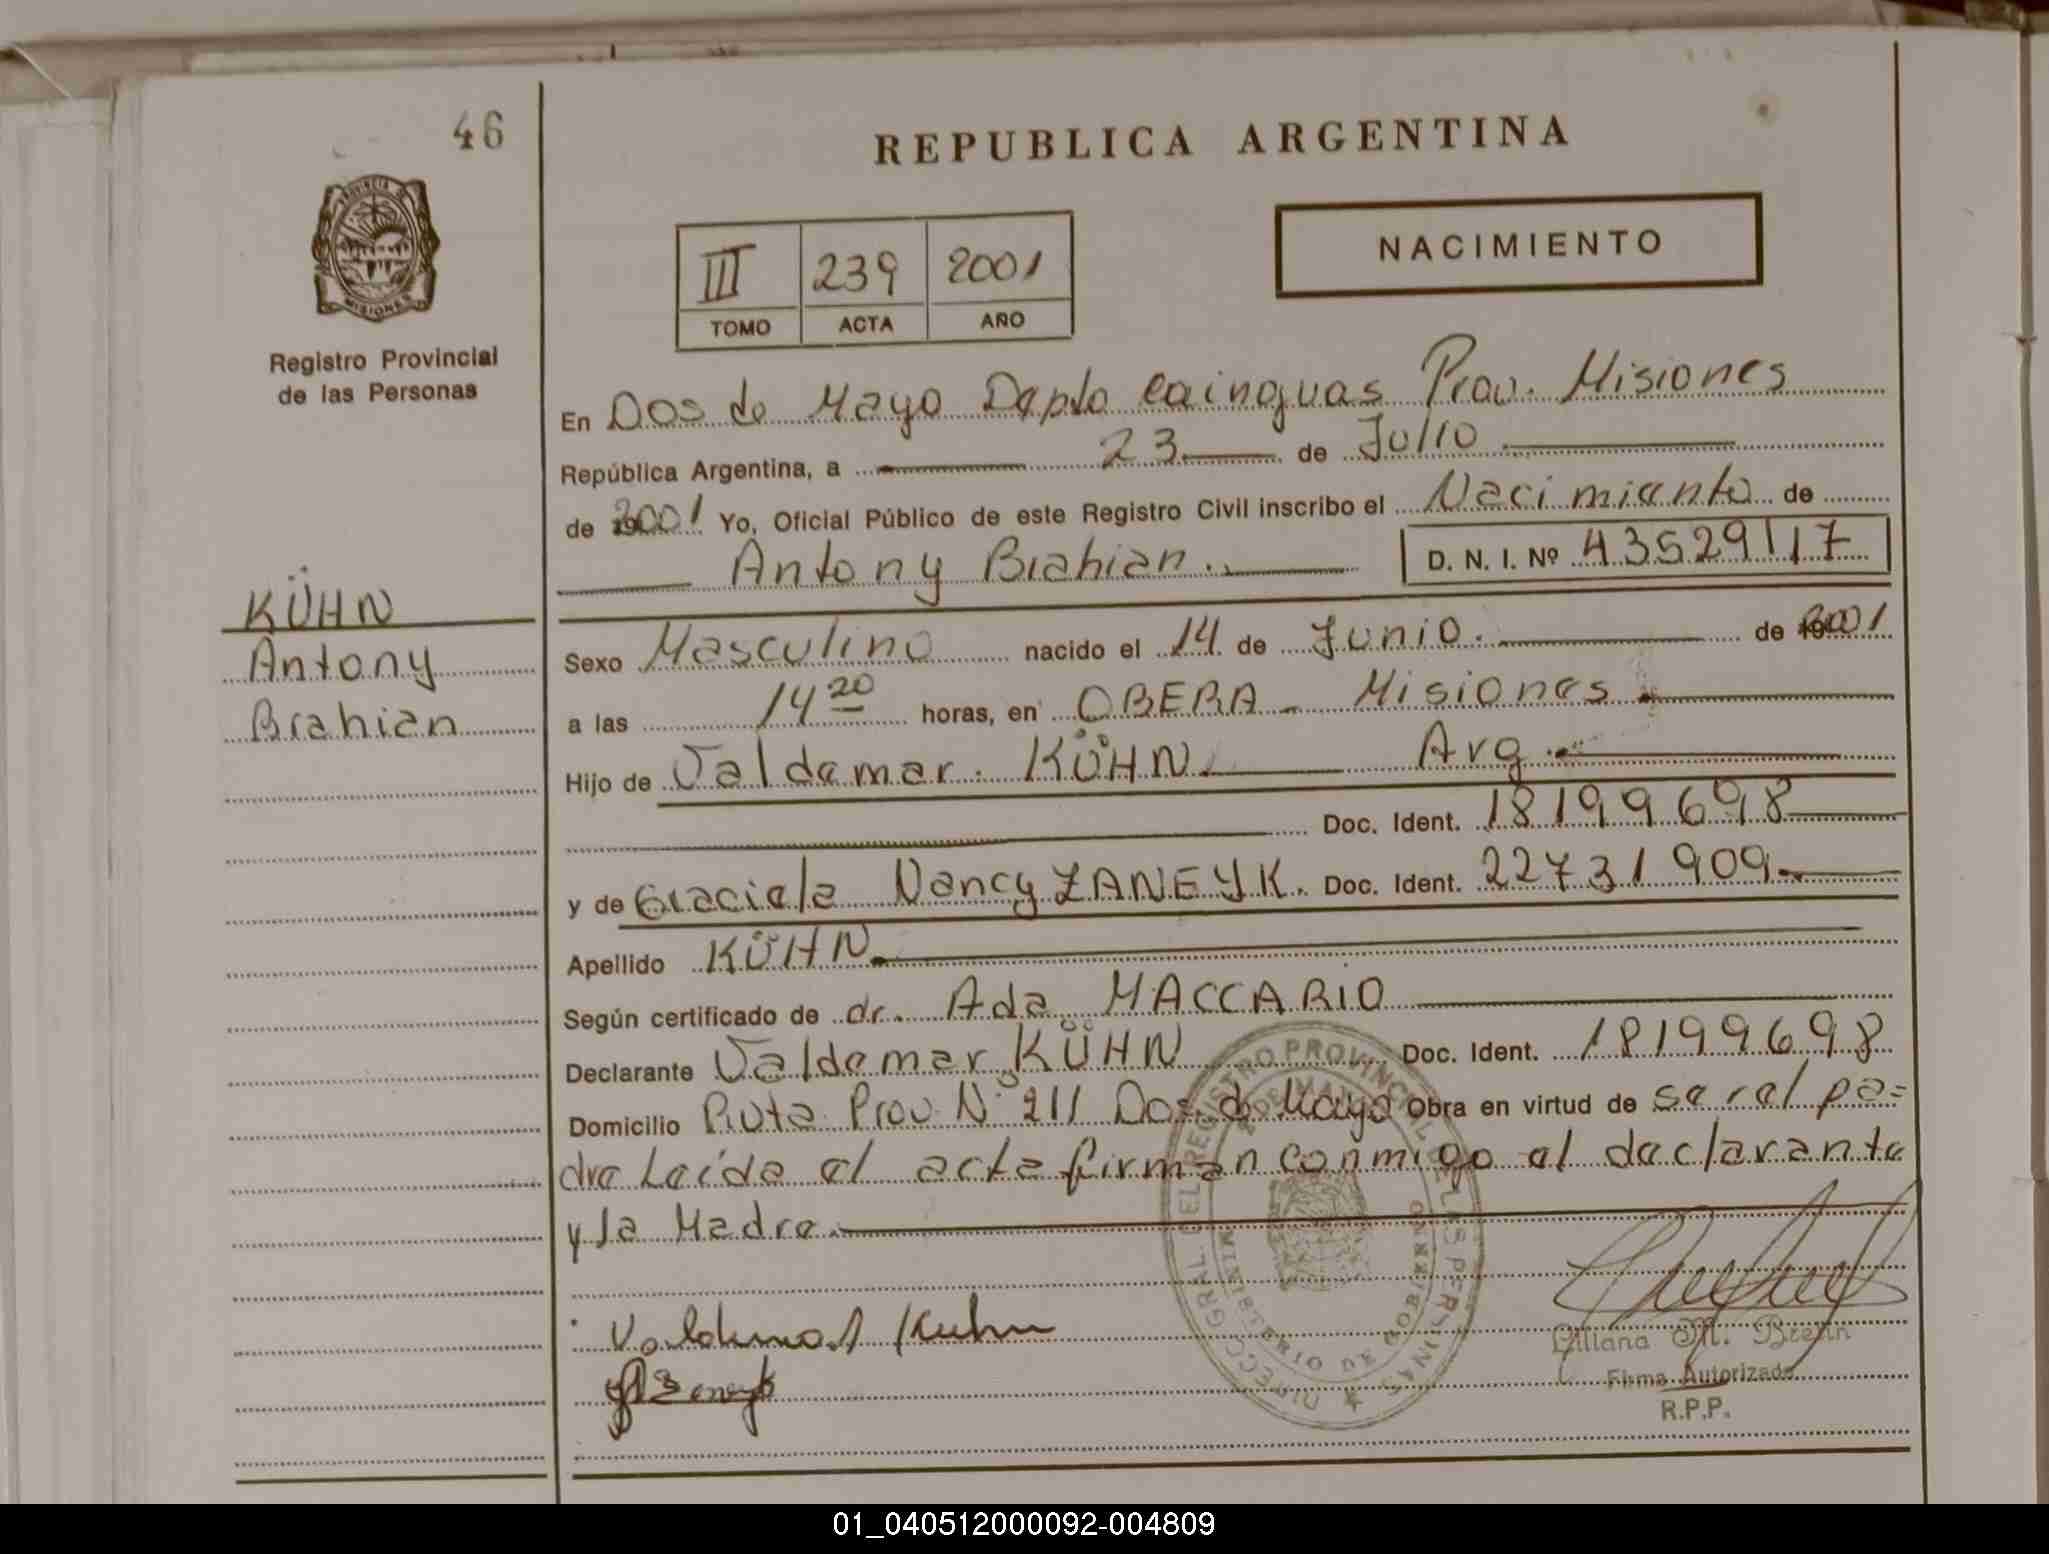 46
REPUBLICA ARGENTINA
PROVINCIA DE
MISIONES
Registro Provincial
de las Personas
III 239 2001
TOMO ACTA AÑO
NACIMIENTO
En Dos de Mayo Depto Cainguas Prov. Misiones
República Argentina, a 23 de Julio
de 2001 Yo, Oficial Público de este Registro Civil inscribo el Nacimiento de
Antony Brahian.. D. N. I. Nº 43529117
KÜHN
Antony
Brahian
Sexo Masculino nacido el 14 de Junio. de 2001
a las 14 20 horas, en OBERA - Misiones.
Hijo de Valdemar. KÜHN. Arg.
Doc. Ident. 18199698
y de Graciela Nancy ZANEYK. Doc. Ident. 22731909.
Apellido KÜHN.
Según certificado de dr. Ada MACCARIO
Declarante Valdemar KÜHN Doc. Ident. 18199698
Domicilio Ruta Prov. Nº 211 Dos de Mayo Obra en virtud de ser el pa=
dre Leída el acta firman conmigo el declarante
y la Madre.
Valdemar Kuhn
DIRECC. GRAL. DEL REGISTRO PROVINCIAL DE LAS PERSONAS
MINISTERIO DE GOBIERNO
Liliana M. Brenn
Firma Autorizada
R.P.P.
01_040512000092-004809